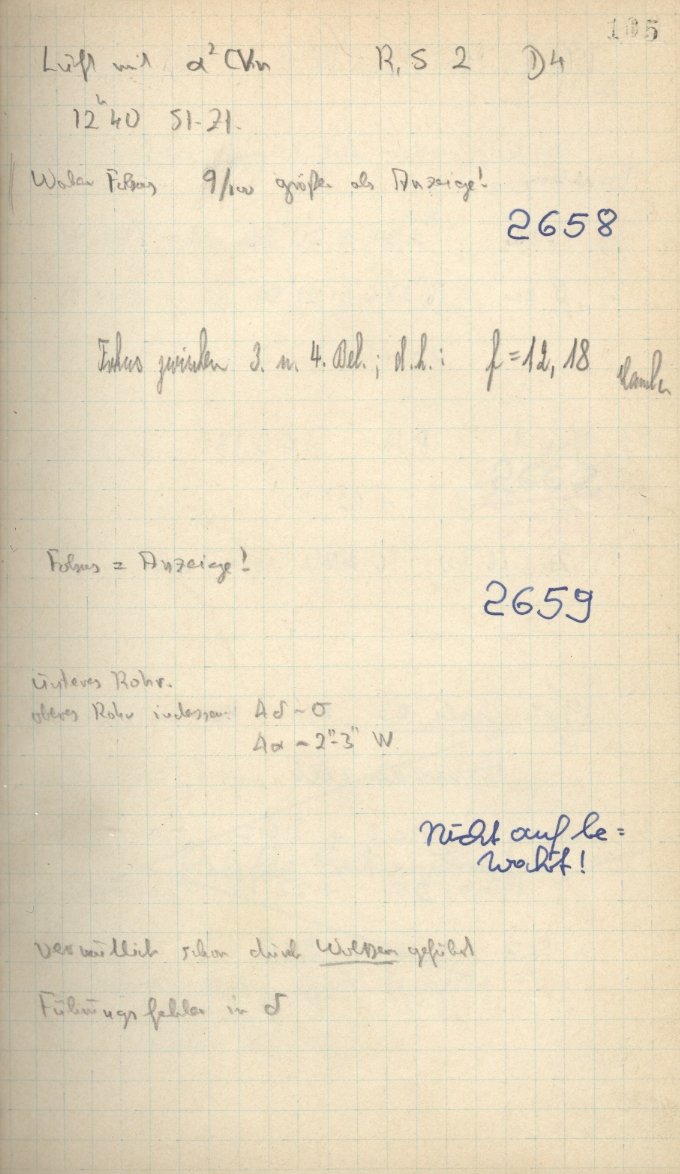 105
Luft mit α² CVn R, S 2 D4
12ʰ40 St.Zt.
Wahrer Fokus 9/100 größer als Anzeige!
2658
Fokus zwischen 3. u. 4. Bel.; d.h.: f = 12,18
Fokus = Anzeige!
2659
unteres Rohr.
oberes Rohr indessen: Δδ ~ 0
Δα ~ 2"-3" W
Nicht aufbe=
wahrt!
vermutlich schon durch Wolken geführt
Führungsfehler in δ